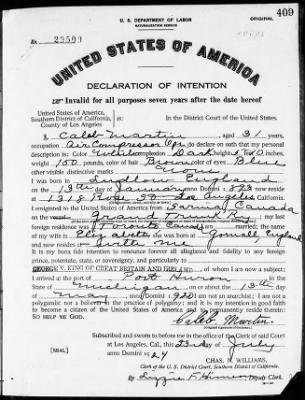 U. S. DEPARTMENT OF LABOR
NATURALIZATION SERVICE
ORIGINAL
409
No. 25599
UNITED STATES OF AMERICA
DECLARATION OF INTENTION
Invalid for all purposes seven years after the date hereof
United States of America,
Southern District of California,
County of Los Angeles
In the District Court of the United States.
I, Caleb Martin, aged 31 years,
occupation Air Compressor Opr, do declare on oath that my personal
description is: Color White, complexion Dark, height 5 feet inches,
weight 150 pounds, color of hair Brown, color of eyes Blue
other visible distinctive marks None
I was born in England
on the 13th day of January, anno Domini 1893; I now reside
at 1318 Los Angeles California
I emigrated to the United States of America from Canada
on the vessel Grand Trunk Ry; my last
foreign residence was Toronto Canada; I am married; the name
of my wife is; she was born at Cornwall, England
and now resides at with me
It is my bona fide intention to renounce forever all allegiance and fidelity to any foreign
prince, potentate, state, or sovereignty, and particularly to
GEORGE V. KING OF GREAT BRITAIN AND IRELAND, of whom I am now a subject;
I arrived at the port of Port Huron, in the
State of Michigan, on or about the 13th day
of May, anno Domini 1920; I am not an anarchist; I am not a
polygamist nor a believer in the practice of polygamy; and it is my intention in good faith
to become a citizen of the United States of America and to permanently reside therein:
SO HELP ME GOD.
Caleb Martin
Subscribed and sworn to before me in the office of the Clerk of said Court
at Los Angeles, Cal., this 23rd day of July
anno Domini 1924
[SEAL]
CHAS. N. WILLIAMS,
Clerk of the U. S. District Court, Southern District of California.
By Deputy Clerk.